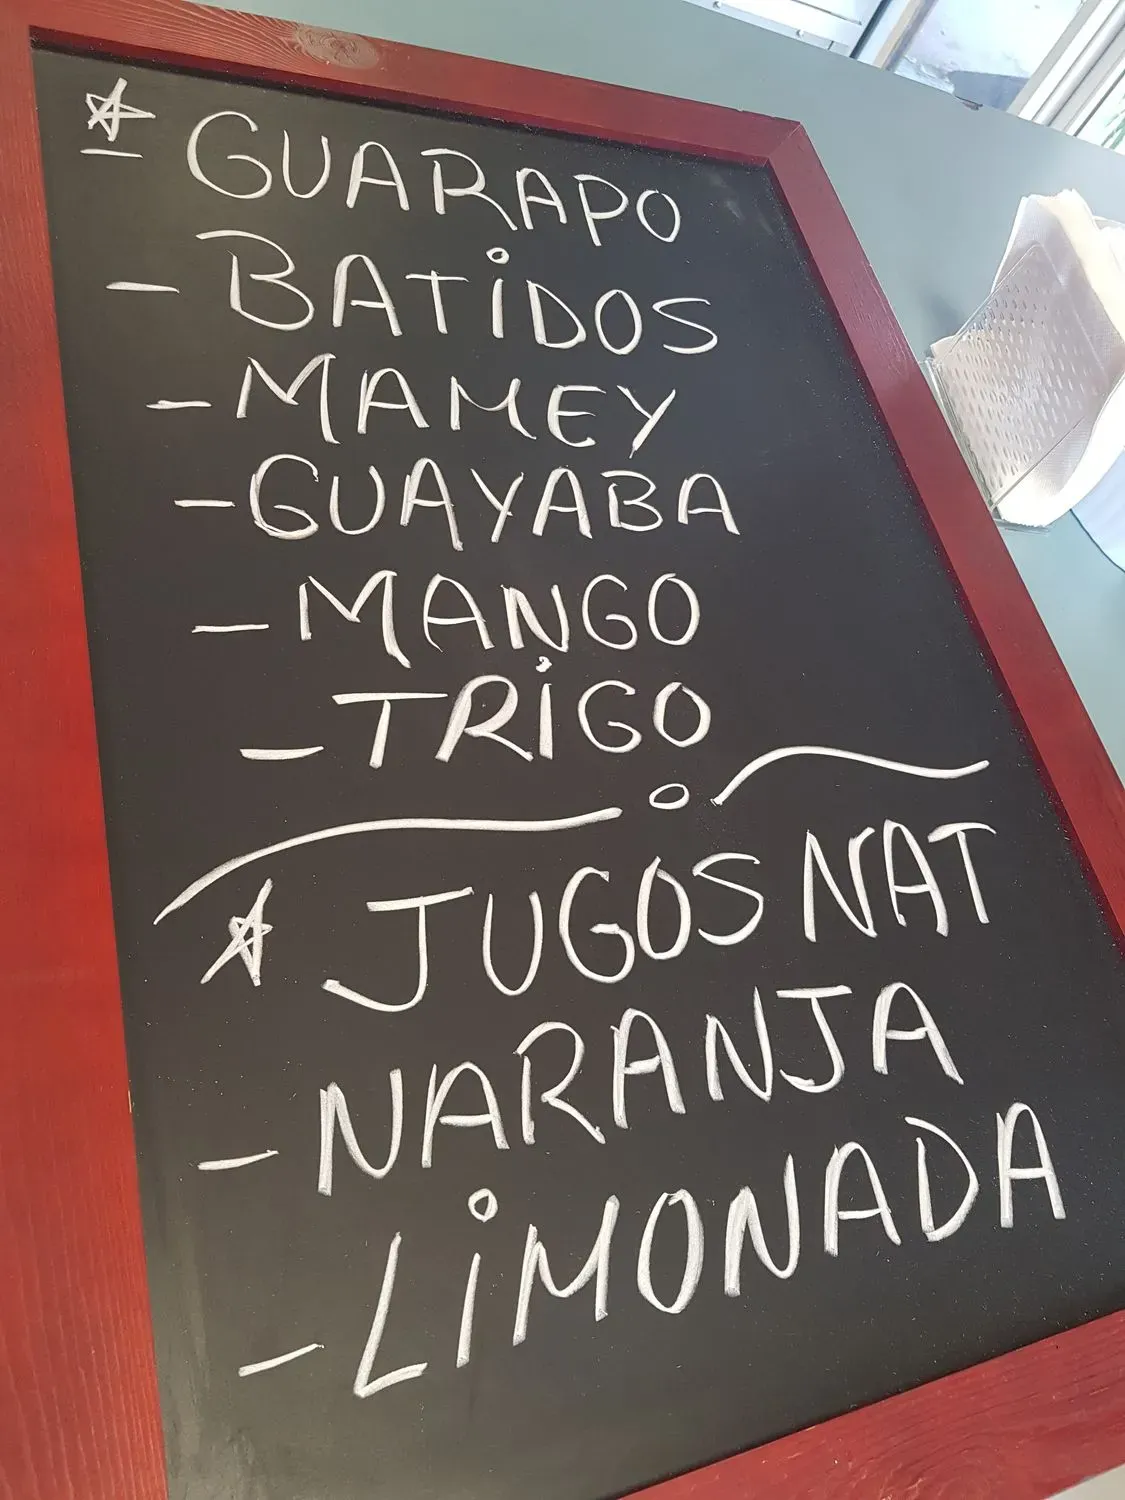 * GUARAPO
- BATIDOS
- MAMEY
- GUAYABA
- MANGO
- TRIGO
* JUGOS NAT
- NARANJA
- LIMONADA